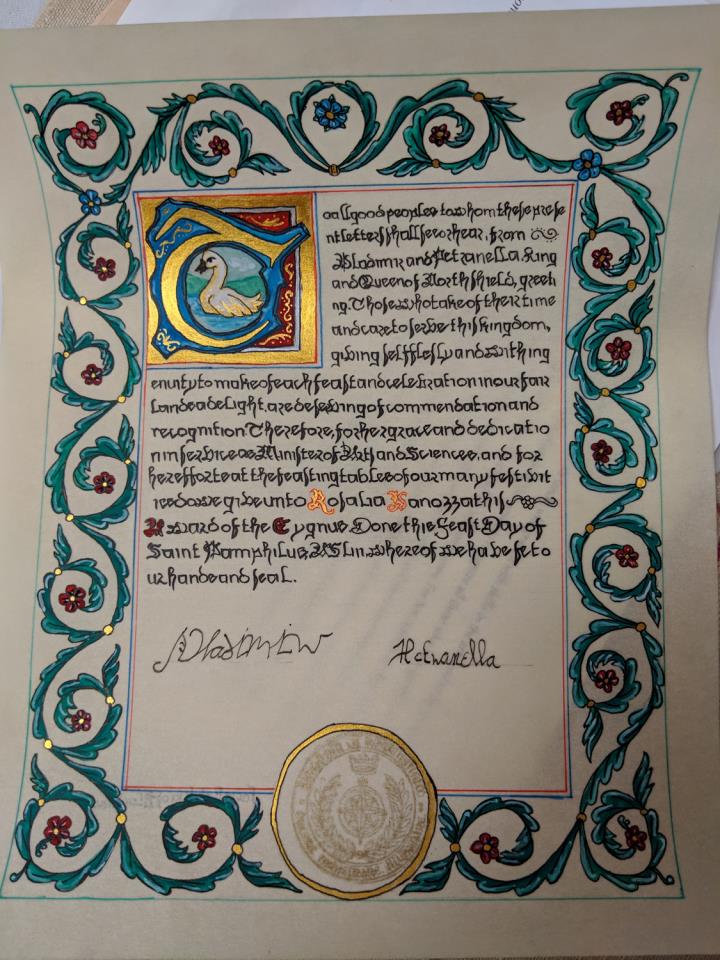 To all good people to whom these prese
nt letters shall see or hear, from
Vladimir and Petranella, King
and Queen of Northshield, greeti
ng. Those who take of their time
and care to serve this kingdom,
giving selflessly and with ing
enuity to make of each feast and celebration in our fair
land a delight, are deserving of commendation and
recognition. Therefore, for her grace and dedicatio
n in service as Minister of Arts and Sciences, and for
her efforts at the feasting tables of our many festivit
ies do we give unto Rosalia Kanozza this
Award of the Cygnus. Done this Feast Day of
Saint Pamphilus, AS Liii, whereof we have set o
ur hands and seal.
Vladimir
Petranella